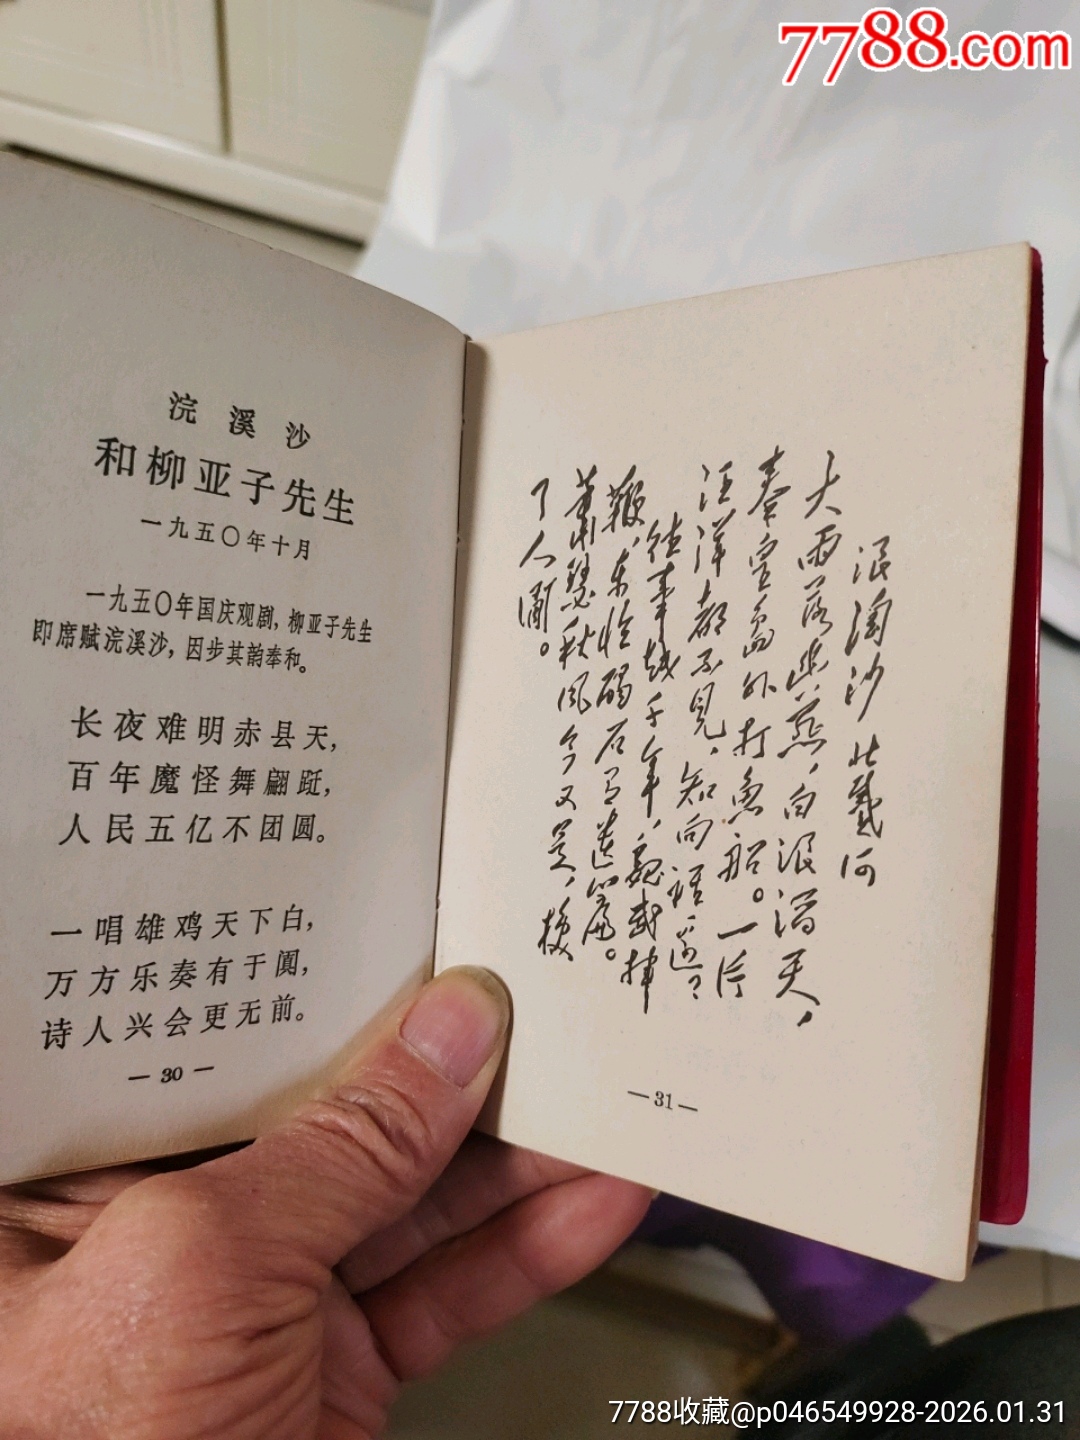 7788.com
浣溪沙
和柳亚子先生
一九五〇年十月
一九五〇年国庆观剧，柳亚子先生
即席赋浣溪沙，因步其韵奉和。
长夜难明赤县天，
百年魔怪舞翩跹，
人民五亿不团圆。
一唱雄鸡天下白，
万方乐奏有于阗，
诗人兴会更无前。
— 30 —
浪淘沙 北戴河
大雨落幽燕，白浪滔天，
秦皇島外打魚船。一片
汪洋都不見，知向誰邊？
往事越千年，魏武揮
鞭，东临碣石有遺篇。
蕭瑟秋风今又是，換
了人间。
— 31 —
7788收藏@p046549928-2026.01.31